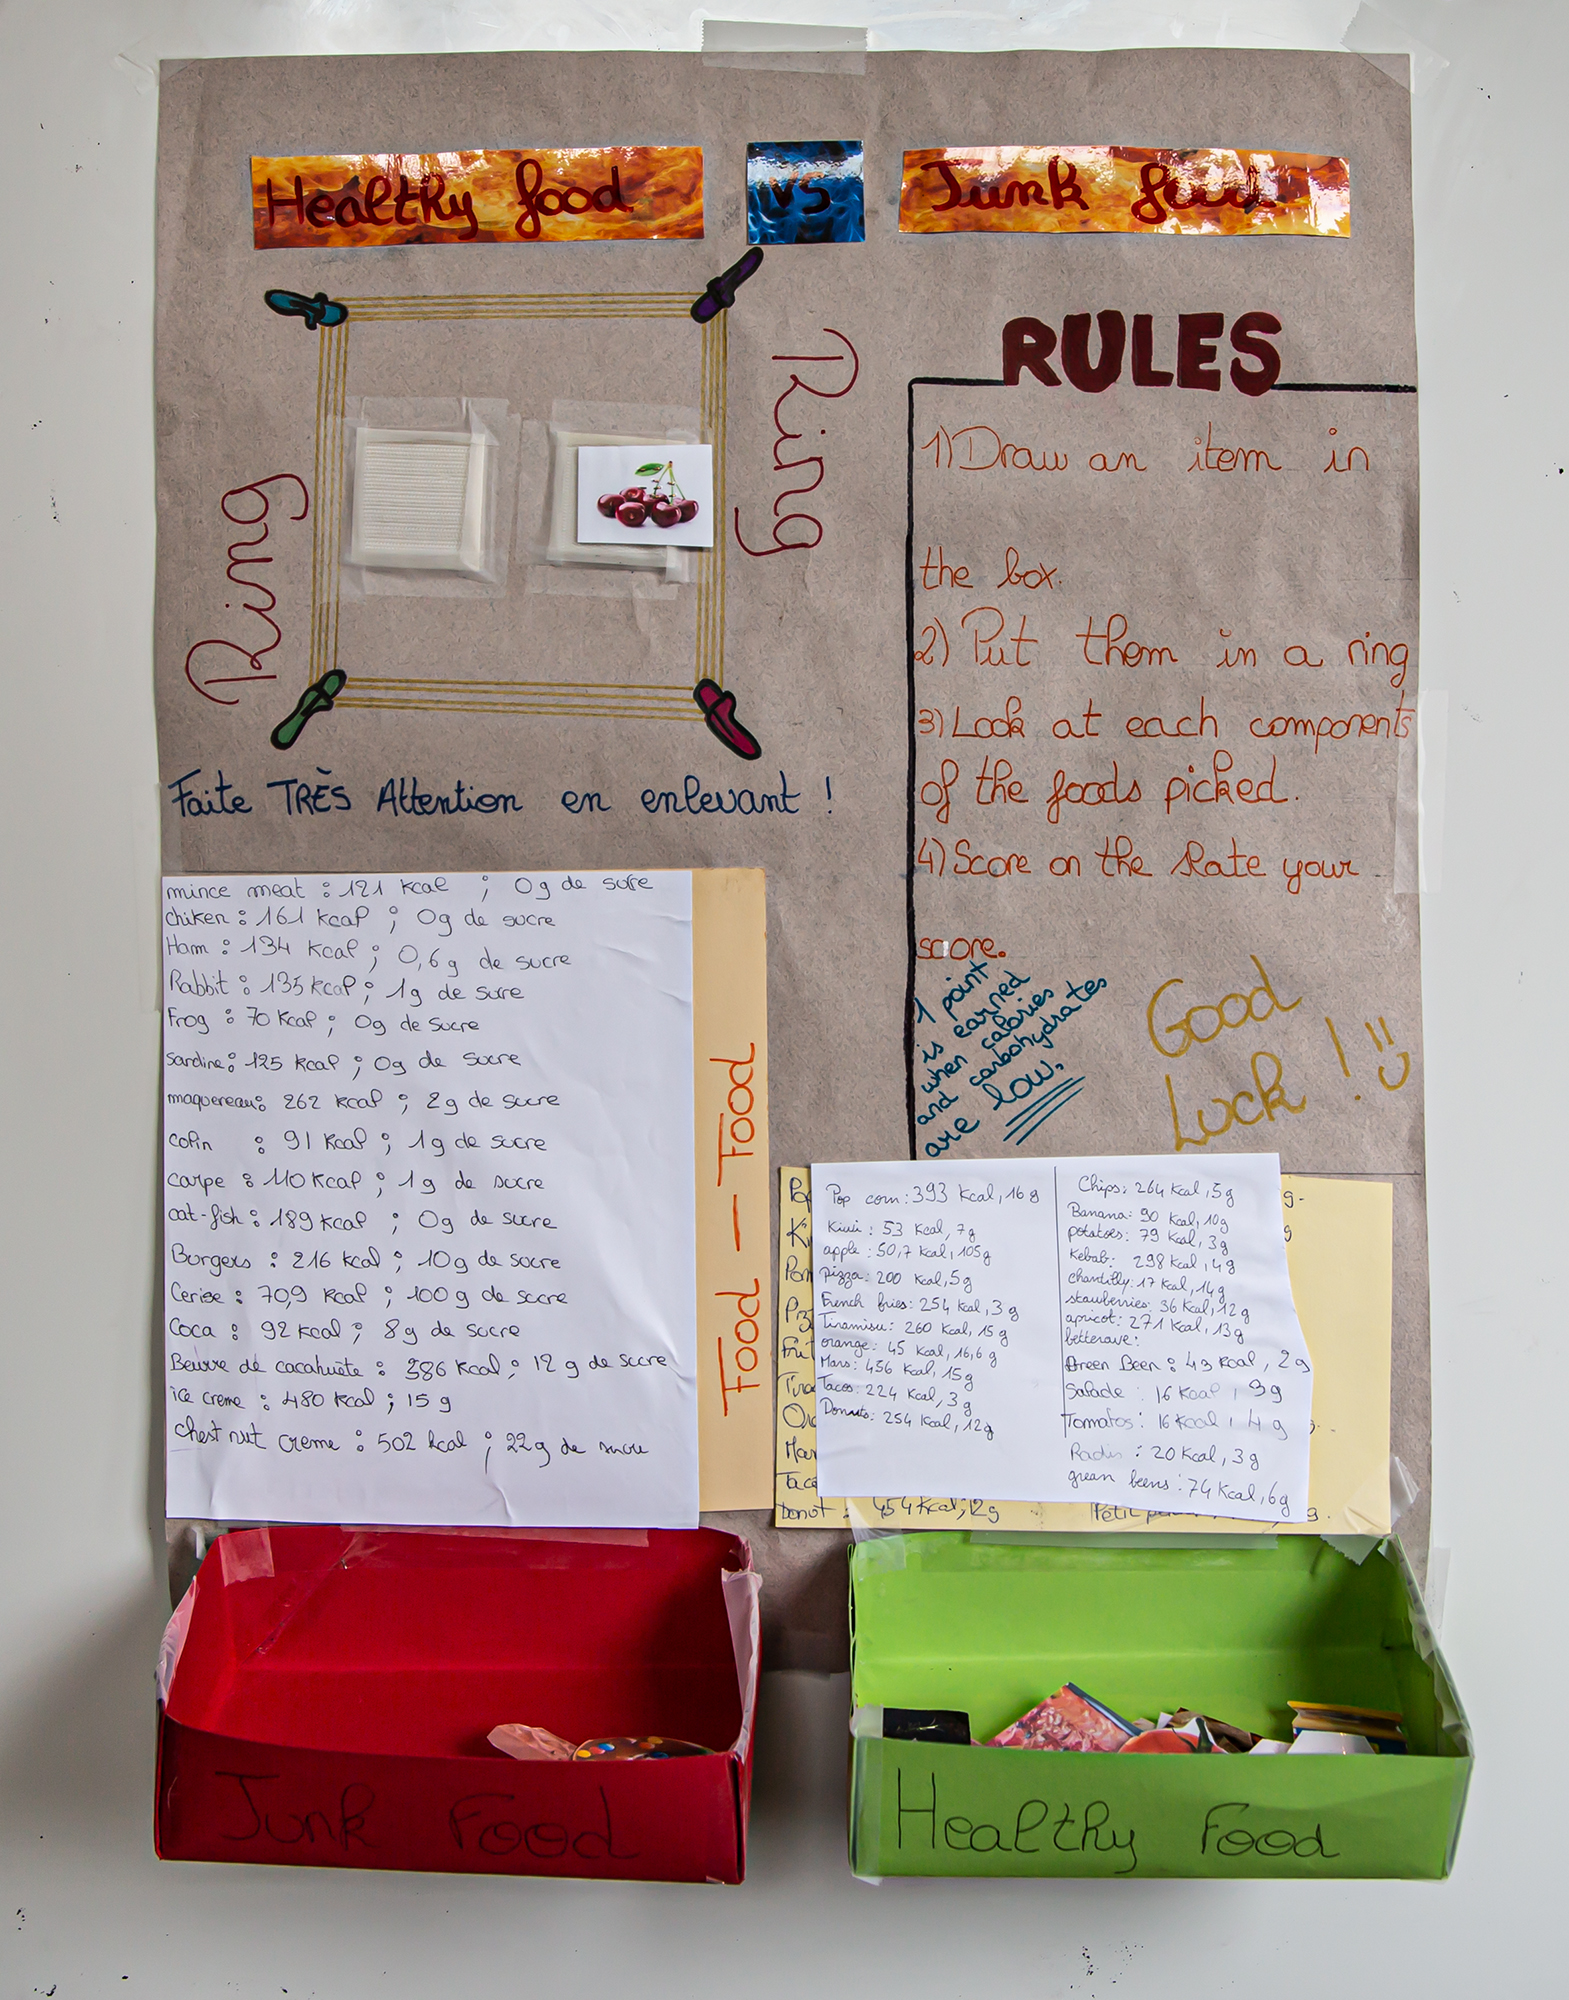 Healthy food
VS
Junk food
Ring
Ring
Faite TRÈS Attention en enlevant !
RULES
1) Draw an item in
the box.
2) Put them in a ring
3) Look at each components
of the foods picked.
4) Score on the slate your
score.
1 point
is earned
when calories
and carbohydrates
are low.
Good
Luck !
mince meat : 121 Kcal ; 0g de sucre
chiken : 161 Kcal ; 0g de sucre
Ham : 134 Kcal ; 0,6 g de sucre
Rabbit : 135 Kcal ; 1g de sucre
Frog : 70 Kcal ; 0g de sucre
sardine : 125 Kcal ; 0g de sucre
maquereau : 262 Kcal ; 2g de sucre
colin : 91 Kcal ; 1g de sucre
carpe : 110 Kcal ; 1g de sucre
cat-fish : 189 Kcal ; 0g de sucre
Burgers : 216 Kcal ; 10g de sucre
Cerise : 70,9 Kcal ; 100g de sucre
Coca : 92 Kcal ; 8g de sucre
Beurre de cacahuète : 586 Kcal ; 12 g de sucre
ice creme : 480 Kcal ; 15 g
chest nut creme : 502 kcal ; 22g de sucre
Food — Food
Pop corn : 393 Kcal, 16g
Kiwi : 53 Kcal, 7g
apple : 50,7 Kcal, 105g
pizza : 200 Kcal, 5g
French fries : 254 Kcal, 3g
Tiramisu : 260 Kcal, 15g
orange : 45 Kcal, 16,6g
Mars : 456 Kcal, 15g
Tacos : 224 Kcal, 3g
Donuts : 254 Kcal, 12g
Chips : 264 Kcal, 5g
Banana : 90 Kcal, 10g
potatoes : 79 Kcal, 3g
Kebab : 298 Kcal, 4g
chantilly : 17 Kcal, 14g
strauberries : 36 Kcal, 12g
apricot : 271 Kcal, 13g
betterave :
Green Been : 43 Kcal, 2g
Salade : 16 Kcal, 3g
Tomatos : 16 Kcal, 4g
Radis : 20 Kcal, 3g
green beens : 74 Kcal, 6g
Donut : 454 Kcal; 12g
Petit
Junk Food
Healthy Food